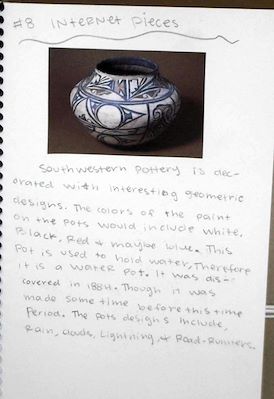 #8 Internet Pieces
Southwestern Pottery is dec-
orated with interesting geometric
designs. The colors of the paint
on the pots would include white,
Black, Red & maybe blue. This
Pot is used to hold water, Therefore
it is a water pot. It was dis-
covered in 1884. Though it was
made some time before this time
Period. The pots designs include,
Rain, clouds, Lightning, & Road-Runners.